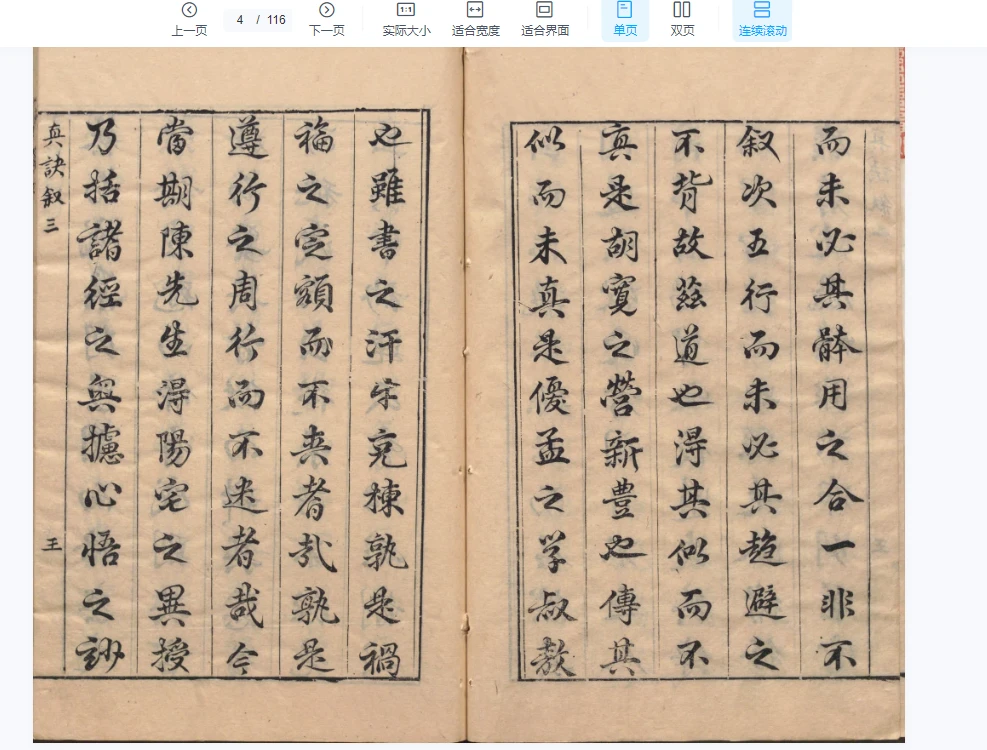 上一页
4 / 116
下一页
1:1
实际大小
适合宽度
适合界面
单页
双页
连续滚动
而未必其骵用之合一非不
叙次五行而未必其趍避之
不背故茲道也得其似而不
真是胡寛之營新豊也傳其
似而未真是優孟之学叔敖
也雖書之汗牛充棟孰是禍
福之定額而不爽者哉孰是
遵行之周行而不迷者哉今
當期陳先生得陽宅之異授
乃括諸經之奥攄心悟之玅
真訣叙三
王